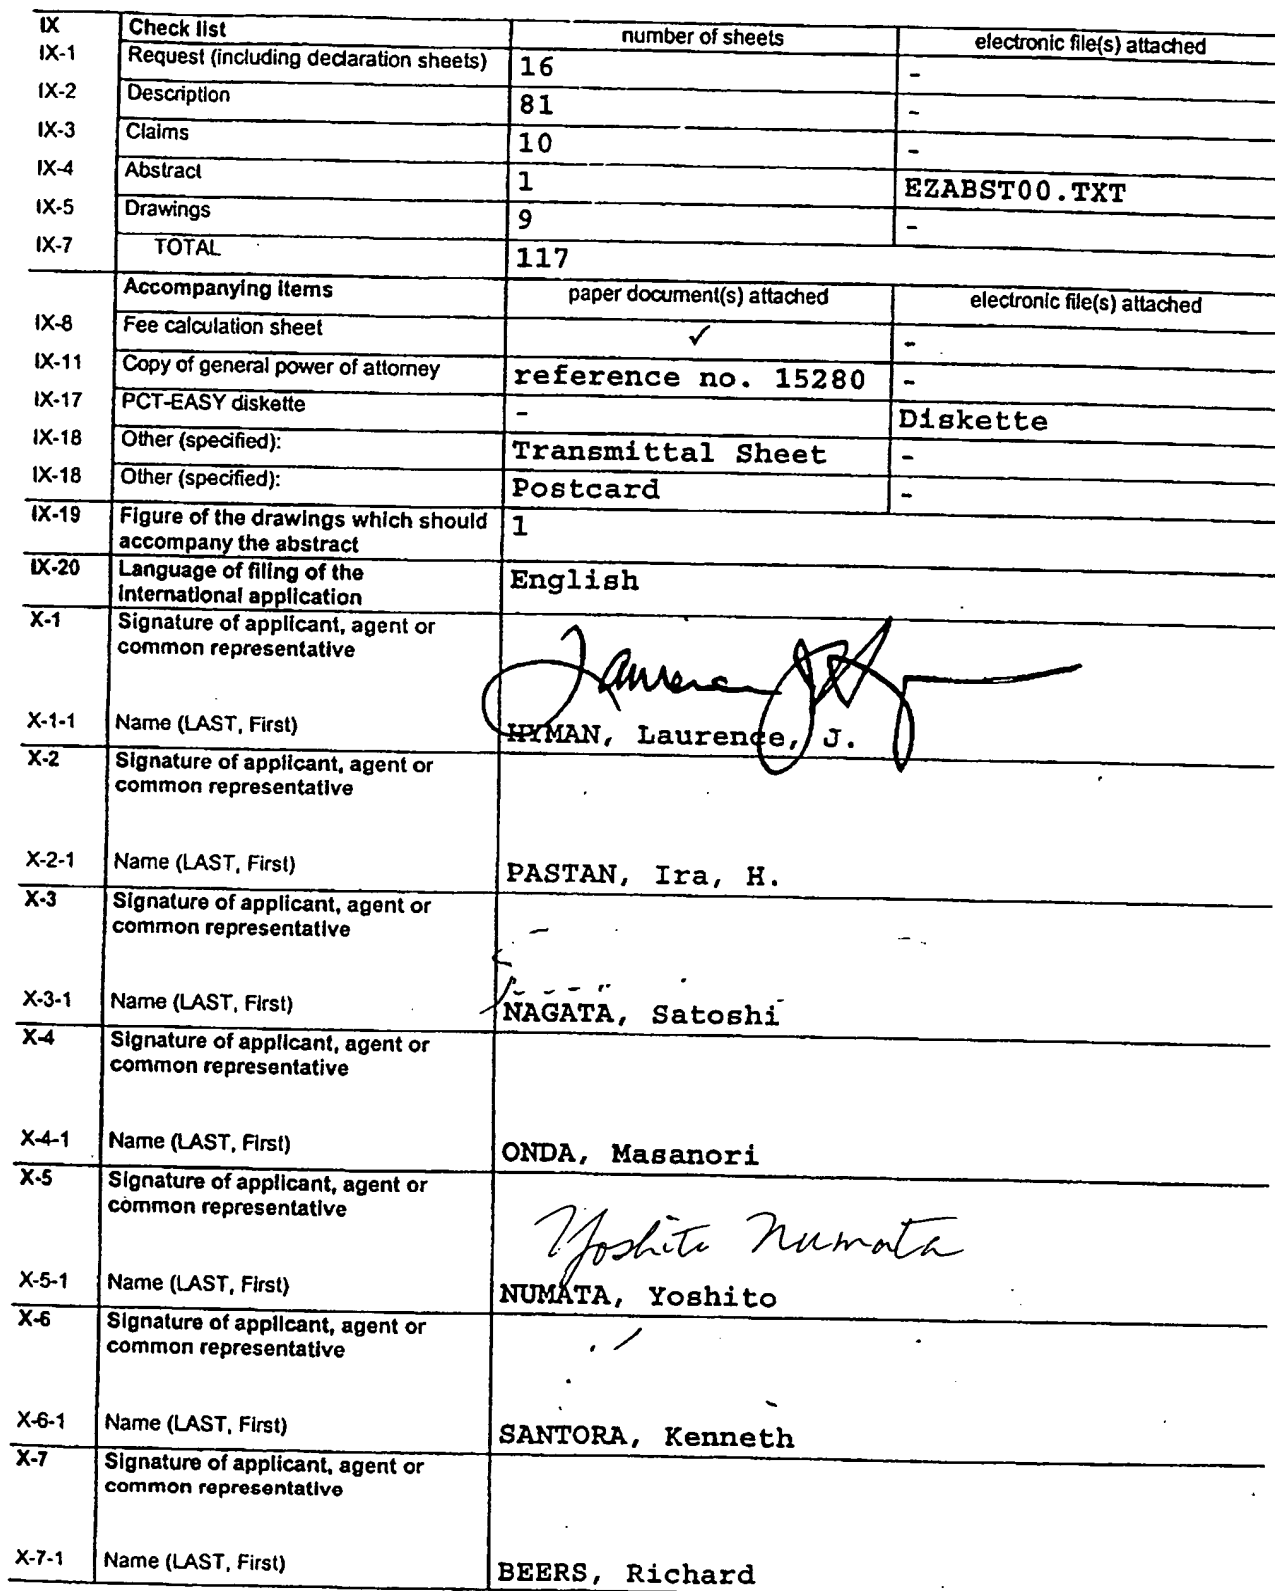 IX Check list number of sheets electronic file(s) attached
IX-1 Request (including declaration sheets) 16 -
IX-2 Description 81 -
IX-3 Claims 10 -
IX-4 Abstract 1 EZABST00.TXT
IX-5 Drawings 9 -
IX-7 TOTAL 117
Accompanying items paper document(s) attached electronic file(s) attached
IX-8 Fee calculation sheet ✓ -
IX-11 Copy of general power of attorney reference no. 15280 -
IX-17 PCT-EASY diskette - Diskette
IX-18 Other (specified): Transmittal Sheet -
IX-18 Other (specified): Postcard -
IX-19 Figure of the drawings which should 1
accompany the abstract
IX-20 Language of filing of the English
international application
X-1 Signature of applicant, agent or
common representative
X-1-1 Name (LAST, First) HYMAN, Laurence, J.
X-2 Signature of applicant, agent or
common representative
X-2-1 Name (LAST, First) PASTAN, Ira, H.
X-3 Signature of applicant, agent or
common representative
X-3-1 Name (LAST, First) NAGATA, Satoshi
X-4 Signature of applicant, agent or
common representative
X-4-1 Name (LAST, First) ONDA, Masanori
X-5 Signature of applicant, agent or
common representative
Yoshito Numata
X-5-1 Name (LAST, First) NUMATA, Yoshito
X-6 Signature of applicant, agent or
common representative
X-6-1 Name (LAST, First) SANTORA, Kenneth
X-7 Signature of applicant, agent or
common representative
X-7-1 Name (LAST, First) BEERS, Richard